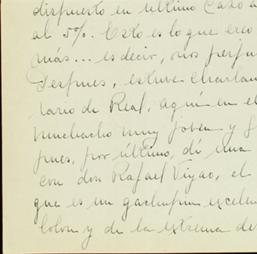 dispuesto en último caso a
al 5%. Esto es lo que creo
más... es decir, nos perju
Después, estuve charlan
tario de Real, aquí en el
muchacho muy joven y f
pues, por último, di una
con don Rafael
que es un gachupin excelen
Colon y de la extrema de